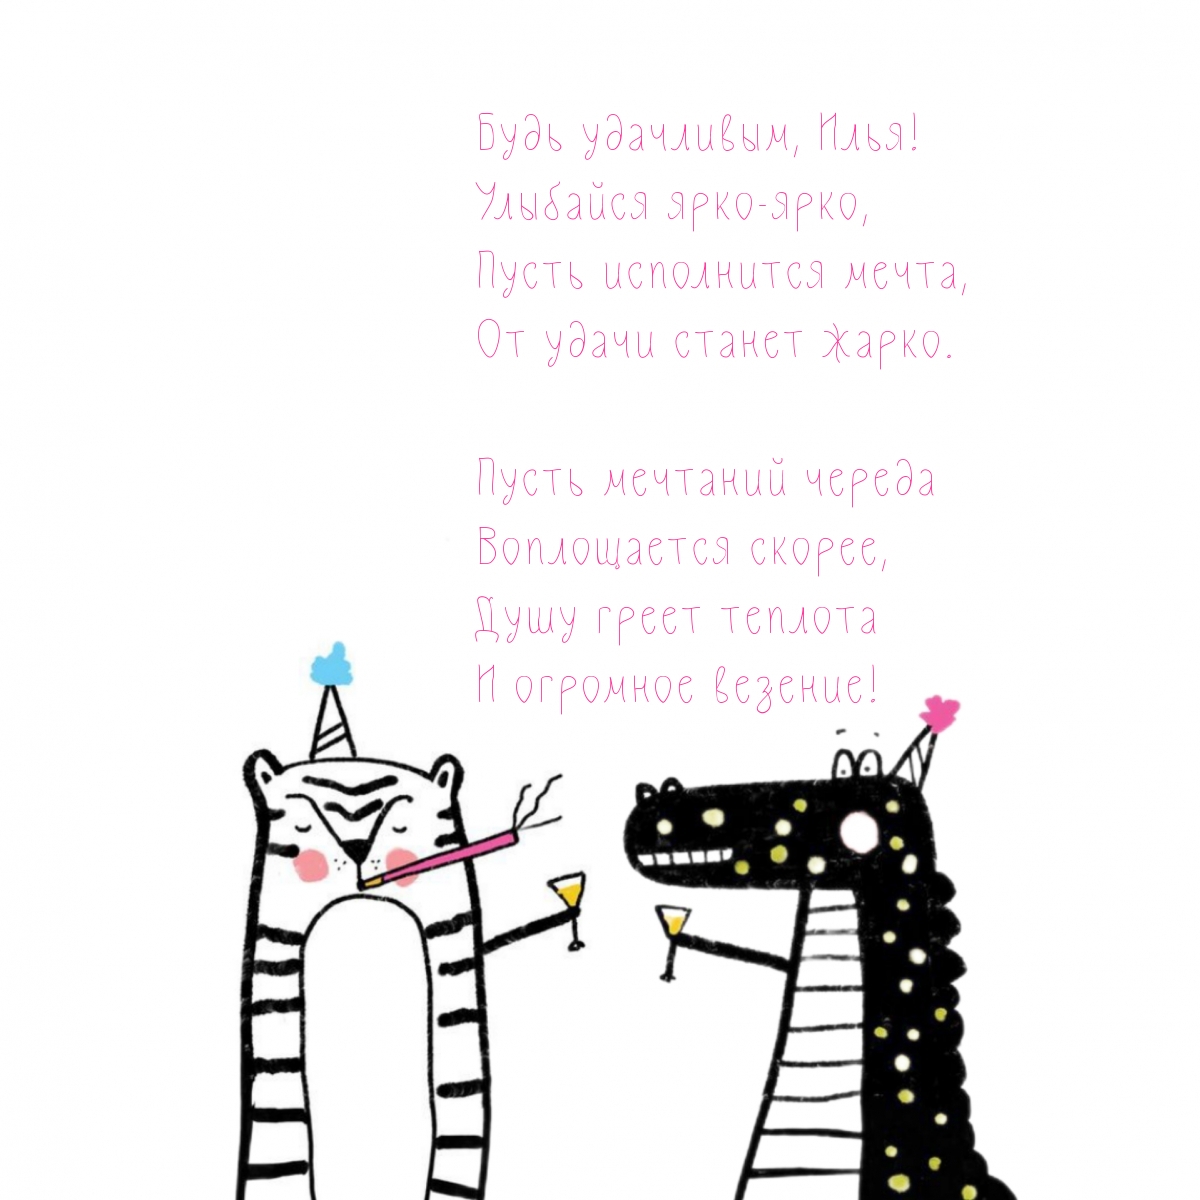 Будь удачливым, Илья!
Улыбайся ярко-ярко,
Пусть исполнится мечта,
От удачи станет жарко.
Пусть мечтаний череда
Воплощается скорее,
Душу греет теплота
И огромное везение!